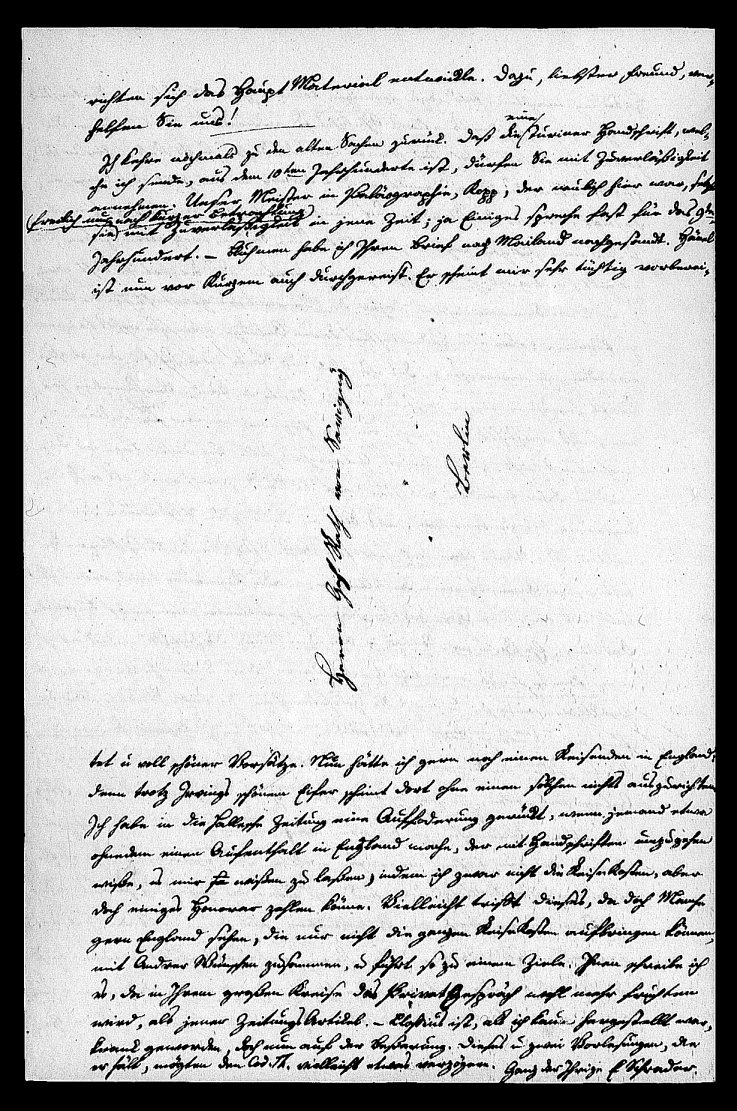 richten sich das Haupt Material entwickle. Dazu, liebster Freund, ver-
helfen Sie uns!
Ich kehre nochmals zu den alten Sachen zurück. Daß die eine Turiner Handschrift, wel-
che ich sende, aus dem 10ten Jahrhunderte ist, dürfen Sie mit Zuverläßigkeit
annehmen. Unser Meister in Paläographie, Kopp, der neulich hier war, setzt
(freilich nur nach kurzer Betrachtung)
sie mit Zuverläßigkeit in jene Zeit; ja Einiges spreche fast für das 9te
Jahrhundert. – Bluhmen habe ich Ihren Brief nach Mailand nachgesandt. Hänel
ist nun vor Kurzem auch durchgereist. Er scheint mir sehr tüchtig vorberei-
Herrn Geh. Rath von Savigny
Berlin
tet u voll schöner Vorsätze. Nun hätte ich gern noch einen Reisenden in England;
denn trotz Irvings schönem Eifer scheint dort ohne einen solchen nichts auszurichten.
Ich habe in die Hallesche Zeitung eine Aufforderung gerückt, wenn jemand etwa
ohnedem einen Aufenthalt in England mache, der mit Handschriften umzugehen
wiße, es mir wißen zu laßen, indem ich zwar nicht die ReiseKosten, aber
doch einiges Honorar zahlen könne. Vielleicht trifft dieses, da doch Manche
gern England sehen, die nur nicht die ganzen ReiseKosten aufbringen können,
mit Andrer Wünschen zusammen, u führt so zu einem Ziele. Ihnen schreibe ich
es, da in Ihrem großen Kreise das PrivatGespräch wohl mehr fruchten
wird, als jener ZeitungsArtikel. – Clossius ist, als ich kaum hergestellt war,
krank geworden, doch nun auf der Beßerung. Dieses u zwei Vorlesungen, die
er hält, mögten den Cod. Th. vielleicht etwas verzögern. Ganz der Ihrige E Schrader.